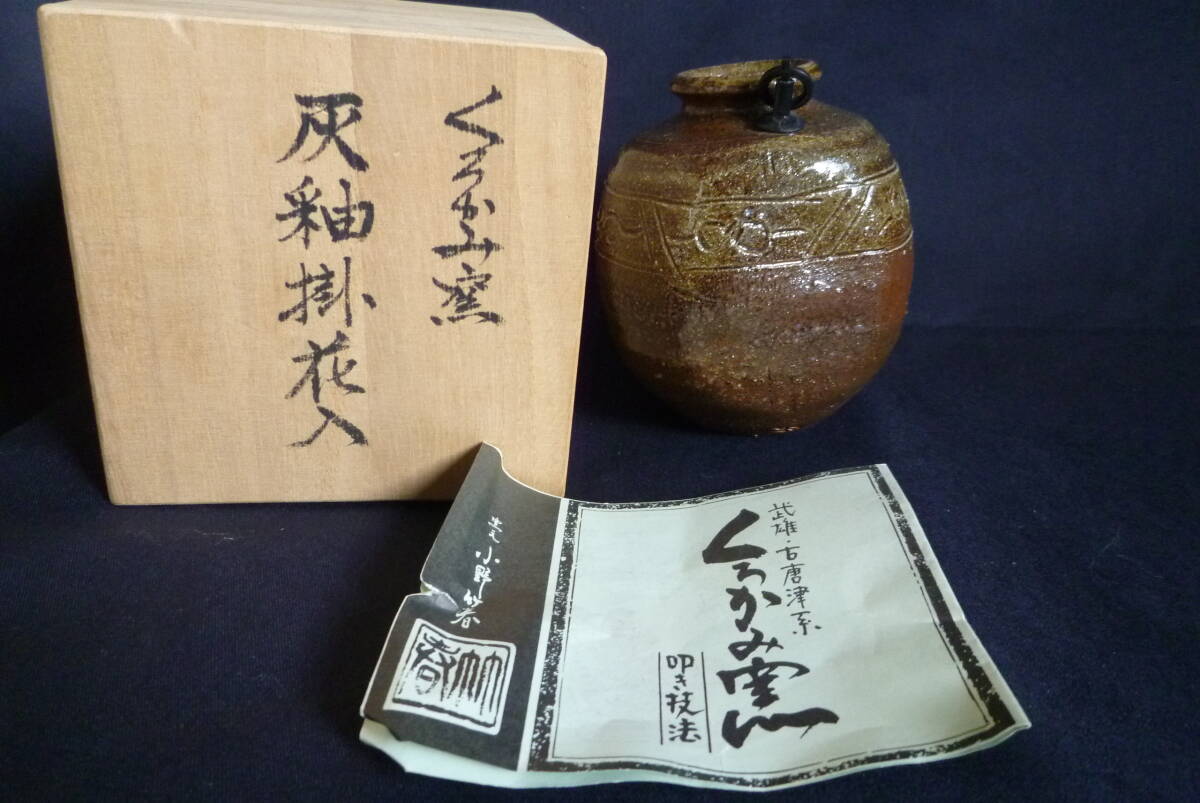 くろかみ窯
灰釉掛花入
武雄・古唐津系
くろかみ窯
叩き技法
窯元 小野竹春
竹春